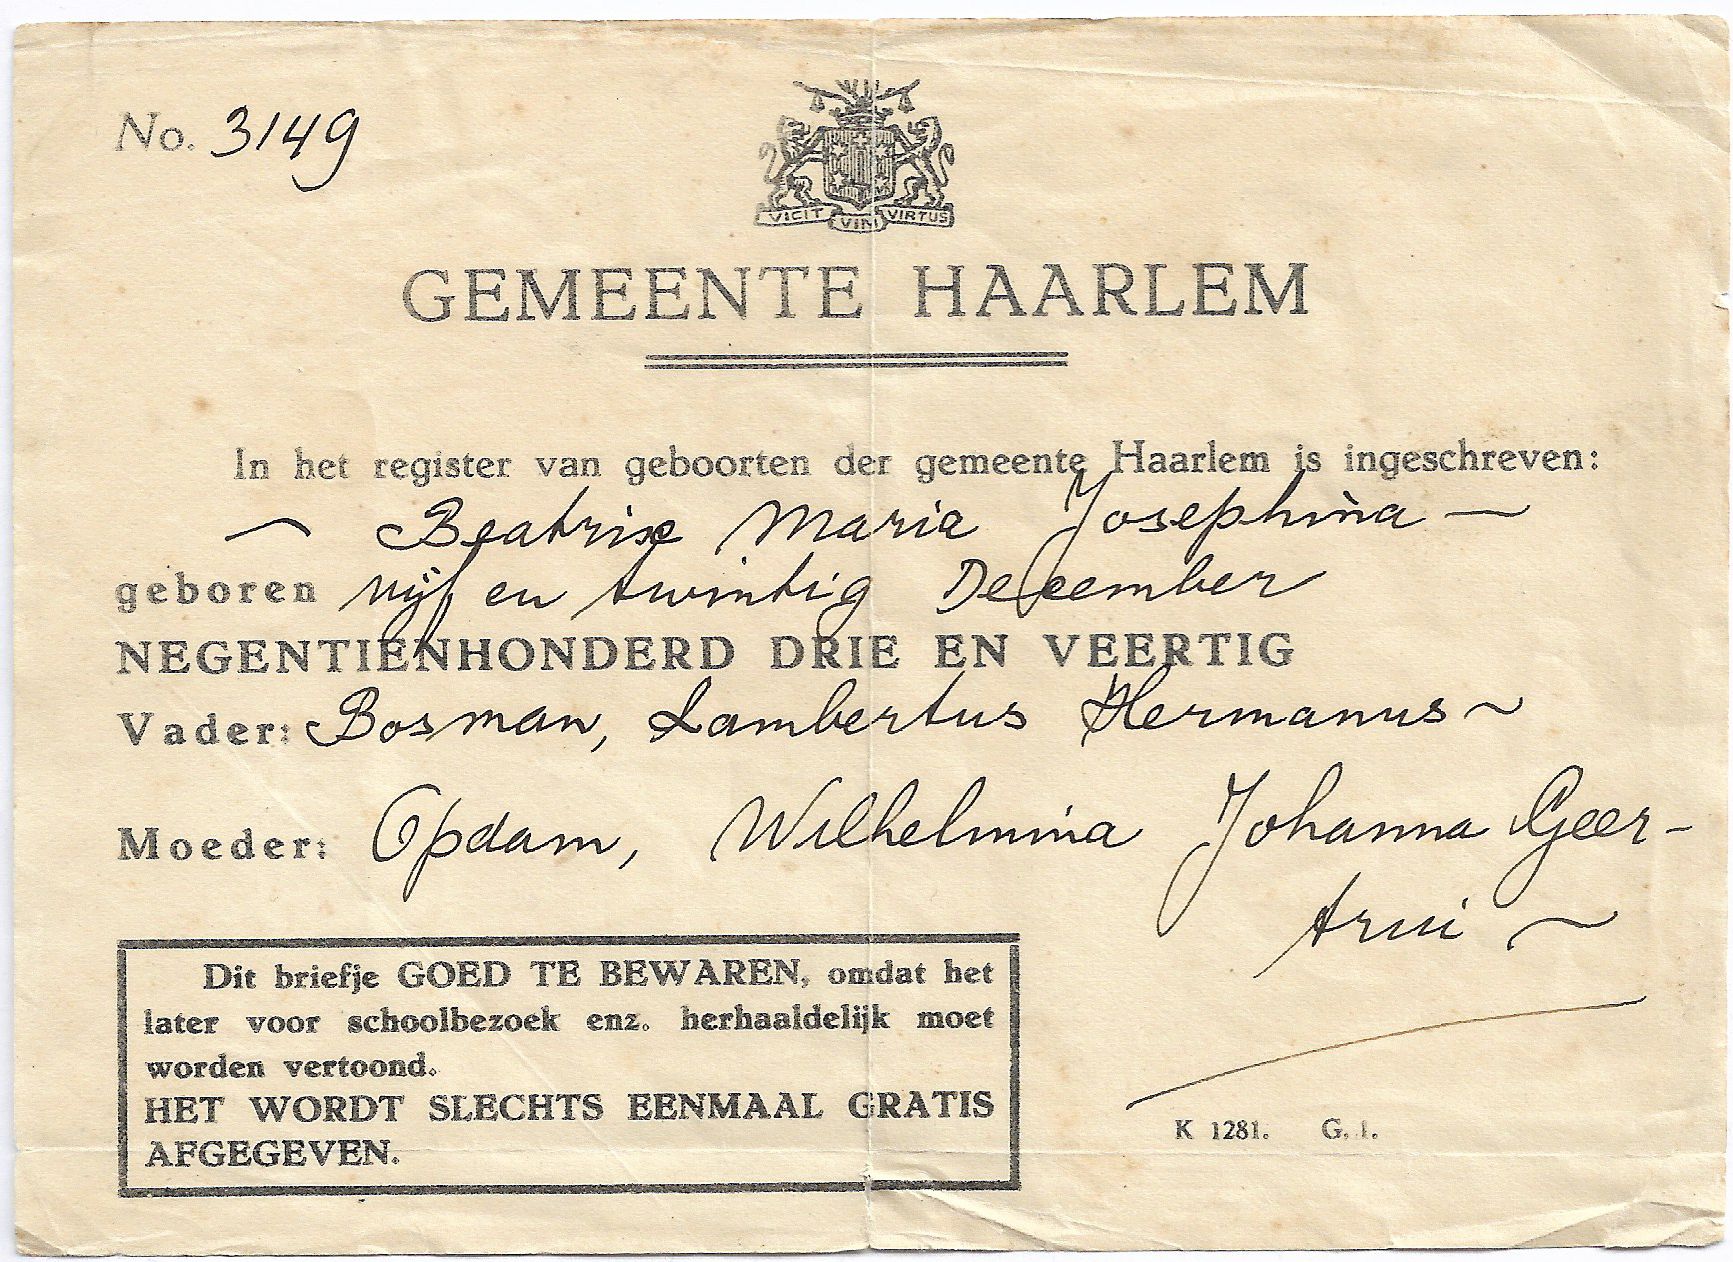 No. 3149
VICIT VIM VIRTUS
GEMEENTE HAARLEM
In het register van geboorten der gemeente Haarlem is ingeschreven:
~ Beatrix Maria Josephina —
geboren vijf en twintig December
NEGENTIENHONDERD DRIE EN VEERTIG
Vader: Bosman, Lambertus Hermanus ~
Moeder: Opdam, Wilhelmina Johanna Geer-
trui ~
Dit briefje GOED TE BEWAREN, omdat het
later voor schoolbezoek enz. herhaaldelijk moet
worden vertoond.
HET WORDT SLECHTS EENMAAL GRATIS
AFGEGEVEN.
K 1281. G. 1.